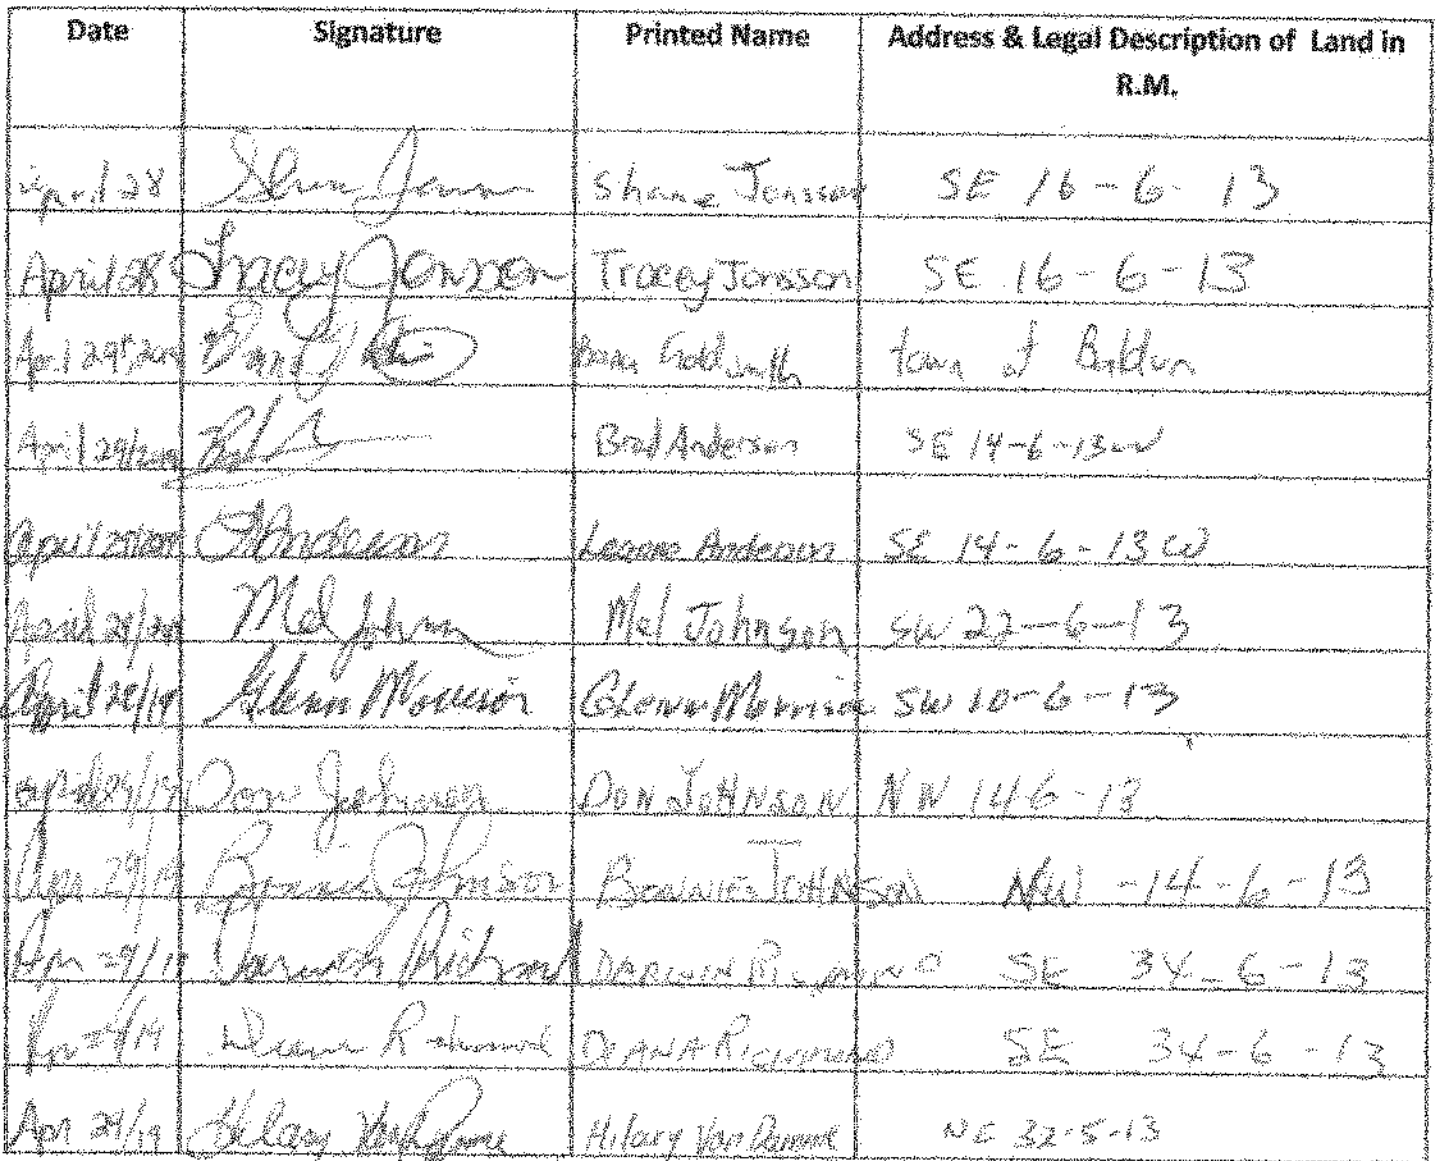 Date Signature Printed Name Address & Legal Description of Land in
R.M.
April 28 Shane Jonsson SE 16-6-13
April 28 Tracey Jonsson Tracey Jonsson SE 16-6-13
April 29th, 2019 Goldsmith town of Baldur
April 29/2019 Brad Anderson SE 14-6-13W
April 29/2019 L Anderson Anderson SE 14-6-13W
April 29/2019 Mel Johnson Mel Johnson SW 22-6-13
April 29/19 Glenn Morrison Glenn Morrison SW 10-6-13
April 29/19 Don Johnson DON JOHNSON NW 14-6-13
Apr. 29/19 Bonnie Johnson BONNIE JOHNSON NW -14-6-13
Apr 29/19 Darwin Richmond DARWIN RICHMOND SE 34-6-13
Apr 29/19 Deana Richmond DEANA RICHMOND SE 34-6-13
Apr 29/19 Hilary Van Damme Hilary Van Damme NE 32-5-13